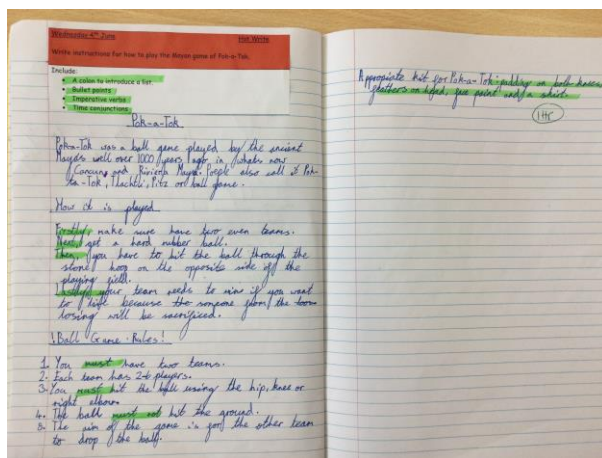 Wednesday 4th June Hot Write
Write instructions for how to play the Mayan game of Pok-a-Tok.
Include:
• A colon to introduce a list.
• Bullet points
• Imperative verbs
• Time conjunctions
Pok-a-Tok
Pok-a-Tok was a ball game played by the ancient
Mayans well over 1000 years ago, in whats now
Cancun, and Riviera Maya. People also call it Pok-
ta-Tok, Tlachtli, Pitz or ball game.
How it is played
Firstly, make sure have two even teams.
Next, get a hard rubber ball.
Then, you have to hit the ball through the
stone hoop on the opposite side off the
playing field.
Lastly, your team needs to win if you want
to live because the someone from the
losing will be sacrificed.
! Ball Game Rules !
1. You must have two teams.
2. Each team has 2-6 players.
3. You must hit the ball using the hip, knee or
right elbow.
4. The ball must not hit the ground.
5. The aim of the game is for the other team
to drop the ball.
Appropiate kit for Pok-a-Tok: padding on both knees
feathers on head, face paint and a skirt.